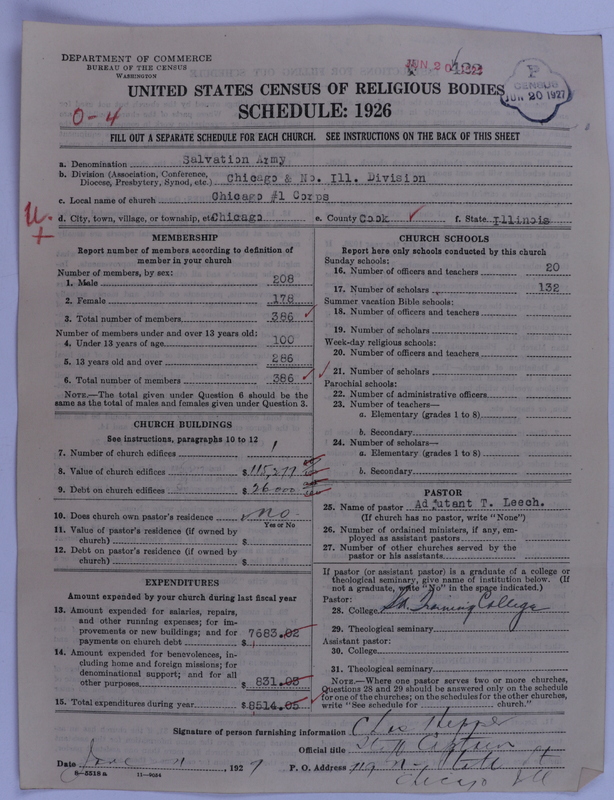 DEPARTMENT OF COMMERCE
BUREAU OF THE CENSUS
WASHINGTON
JUN 20
P
CENSUS
JUN 20 1927
UNITED STATES CENSUS OF RELIGIOUS BODIES
SCHEDULE: 1926
0-4
FILL OUT A SEPARATE SCHEDULE FOR EACH CHURCH. SEE INSTRUCTIONS ON THE BACK OF THIS SHEET
a. Denomination Salvation Army
b. Division (Association, Conference, Diocese, Presbytery, Synod, etc.) Chicago & No. Ill. Division
c. Local name of church Chicago #1 Corps
d. City, town, village, or township, etc. Chicago e. County Cook f. State Illinois
MEMBERSHIP
Report number of members according to definition of
member in your church
Number of members, by sex:
1. Male 208
2. Female 178
3. Total number of members 386
Number of members under and over 13 years old:
4. Under 13 years of age 100
5. 13 years old and over 286
6. Total number of members 386
NOTE.—The total given under Question 6 should be the
same as the total of males and females given under Question 3.
CHURCH BUILDINGS
See instructions, paragraphs 10 to 12
7. Number of church edifices 1
8. Value of church edifices $ 115,277
9. Debt on church edifices $ 26000
10. Does church own pastor's residence No
Yes or No
11. Value of pastor's residence (if owned by
church) $
12. Debt on pastor's residence (if owned by
church) $
EXPENDITURES
Amount expended by your church during last fiscal year
13. Amount expended for salaries, repairs,
and other running expenses; for im-
provements or new buildings; and for
payments on church debt $ 7683.02
14. Amount expended for benevolences, in-
cluding home and foreign missions; for
denominational support; and for all
other purposes $ 831.03
15. Total expenditures during year $ 8514.05
CHURCH SCHOOLS
Report here only schools conducted by this church
Sunday schools:
16. Number of officers and teachers 20
17. Number of scholars 132
Summer vacation Bible schools:
18. Number of officers and teachers
19. Number of scholars
Week-day religious schools:
20. Number of officers and teachers
21. Number of scholars
Parochial schools:
22. Number of administrative officers
23. Number of teachers—
a. Elementary (grades 1 to 8)
b. Secondary
24. Number of scholars—
a. Elementary (grades 1 to 8)
b. Secondary
PASTOR
25. Name of pastor Adjutant T. Leech.
(If church has no pastor, write "None")
26. Number of ordained ministers, if any, em-
ployed as assistant pastors
27. Number of other churches served by the
pastor or his assistants
If pastor (or assistant pastor) is a graduate of a college or
theological seminary, give name of institution below. (If
not a graduate, write "No" in the space indicated.)
Pastor:
28. College SA Training College
29. Theological seminary
Assistant pastor:
30. College
31. Theological seminary
NOTE.—Where one pastor serves two or more churches,
Questions 28 and 29 should be answered only on the schedule
for one of the churches; on the schedules for the other churches,
write "See schedule for church."
Signature of person furnishing information Chas
Official title Staff Captain
Date June 1927 P. O. Address 719 N State St
Chicago Ill
8-5518a 11-9034